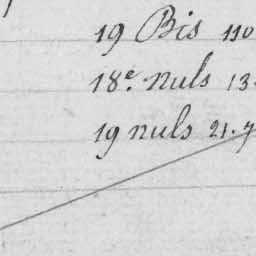 19 Bis 110
18e. nuls 13
19 nuls 21.7